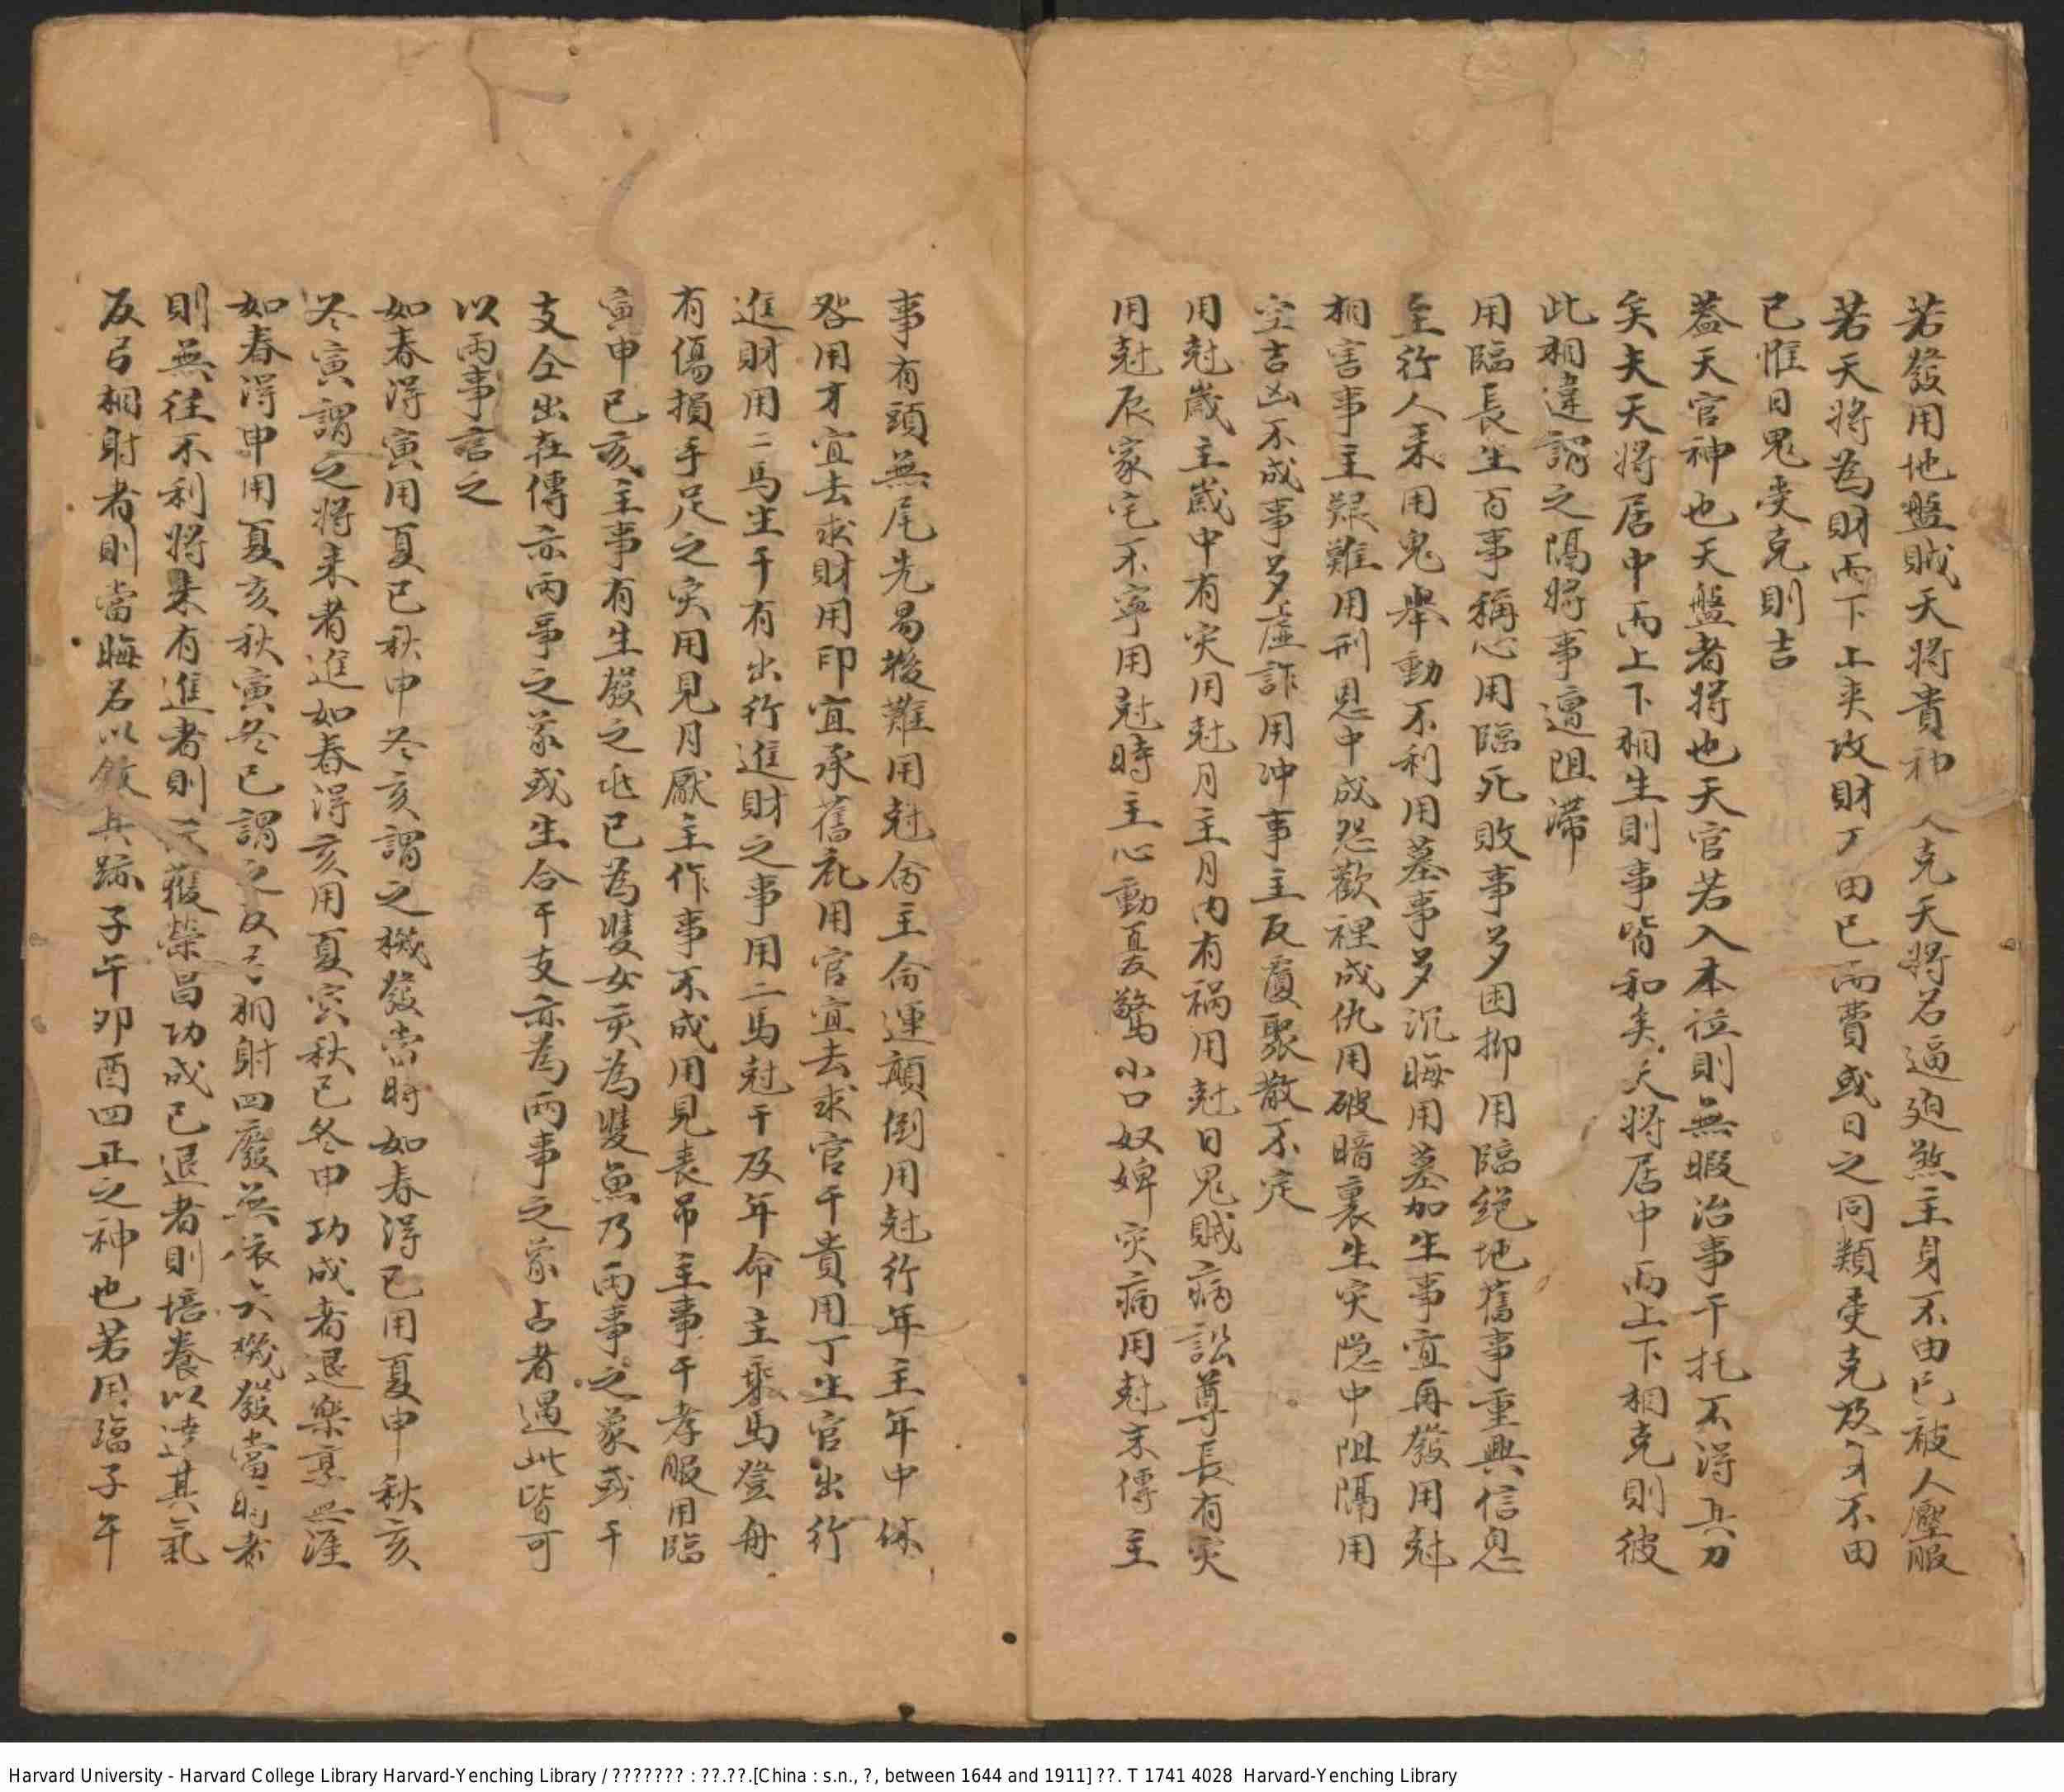 若發用地盤賊天將貴神人克天將名逼迫煞主身不由已被人壓服
若天將為財而下上夾攻財不由已而費或日之同類受克及不由
已惟日鬼受克則吉
蓋天官神也天盤者將也天官若入本位則無暇治事干托不得其力
矣夫天將居中而上下相生則事皆和矣天將居中而上下相克則彼
此相違謂之隔將事邅阻滯
用臨長生百事稱心用臨死敗事多困抑用臨絕地舊事重興信息
至行人來用鬼舉動不利用墓事多沉晦用墓加生事宜再發用尅
相害事主艱難用刑恩中成怨歡裡成仇用破暗裏生灾隐中阻隔用
空吉凶不成事多虛詐用冲事主反覆聚散不定
用尅歲主歲中有灾用尅月主月内有禍用尅日鬼賊病訟尊長有灾
用尅辰家宅不寧用尅時主心動憂驚小口奴婢灾病用尅末傳主
事有頭無尾先易後難用尅命主命運顛倒用尅行年主年中休
咎用才宜去求財用印宜承舊祉用官宜去求官干貴用丁主官出行
進財用二馬生干有出行進財之事用二馬尅干及年命主乘馬登舟
有傷損手足之灾用見月厭主作事不成用見喪吊主事干孝服用臨
寅申已亥主事有生發之兆已為雙女亥為雙魚乃兩事之象或干
支仝出在傳亦兩事之象或生合干支亦為兩事之象占者遇此皆可
以兩事言之
如春得寅用夏已秋申冬亥謂之機發當時如春得已用夏申秋亥
冬寅謂之將來者進如春得亥用夏寅秋已冬申功成者退樂享無涯
如春得申用夏亥秋寅冬已謂之反弓相射四廢無依大機發當時者
則無往不利將來有進者則獲榮昌功成已退者則培養以達其氣
反弓相射者則當晦名以斂其跡子午卯酉四正之神也若用臨子午
Harvard University - Harvard College Library Harvard-Yenching Library / ??????? : ??.??.[China : s.n., ?, between 1644 and 1911] ??. T 1741 4028 Harvard-Yenching Library